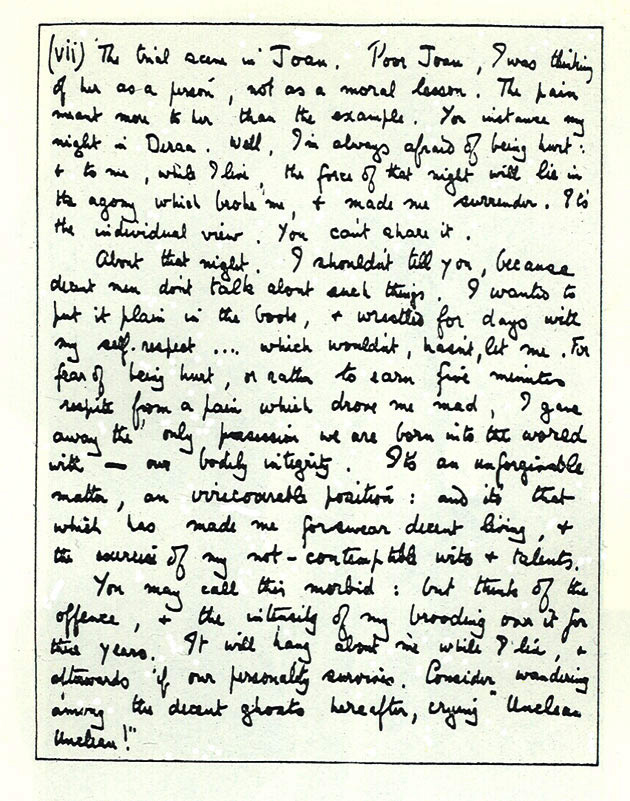 (vii) The trial scene in Joan. Poor Joan, I was thinking
of her as a person, not as a moral lesson. The pain
meant more to her than the example. You instance my
night in Deraa. Well, I'm always afraid of being hurt:
& to me, while I live, the force of that night will lie in
the agony which broke me, & made me surrender. It's
the individual view. You can't share it.
About that night. I shouldn't tell you, because
decent men don't talk about such things. I wanted to
put it plain in the book, & wrestled for days with
my self-respect .... which wouldn't, hasn't, let me. For
fear of being hurt, or rather to earn five minutes
respite from a pain which drove me mad, I gave
away the only possession we are born into the world
with — our bodily integrity. It's an unforgivable
matter, an irrecoverable position: and it's that
which has made me forswear decent living, &
the exercise of my not-contemptible wits & talents.
You may call this morbid: but think of the
offence, & the intensity of my brooding over it for
these years. It will hang about me while I live, &
afterwards if our personality survives. Consider wandering
among the decent ghosts hereafter, crying "Unclean
Unclean!"